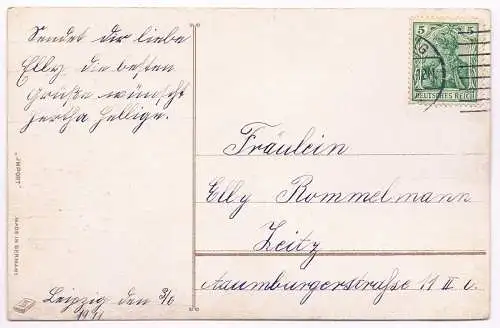 Sendet der liebe
Elly die besten
Grüße wünscht
Hertha Hellige.
Leipzig den 3/6
1911
5 5
DEUTSCHES REICH
Fräulein
Elly Rommelmann
Zeitz
Naumburgerstraße 11 II v.
"IMPORT"
MADE IN GERMANY